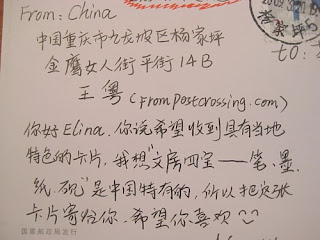 From: China
中国重庆市九龙坡区杨家坪
金鹰女人街平街14B
王粤(From postcrossing.com)
to:
杨家坪
你好Elina.你说希望收到具有当地
特色的卡片,我想"文房四宝——笔、墨、
纸、砚"是中国特有的,所以把这张
卡片寄给你.希望你喜欢
国家邮政局发行